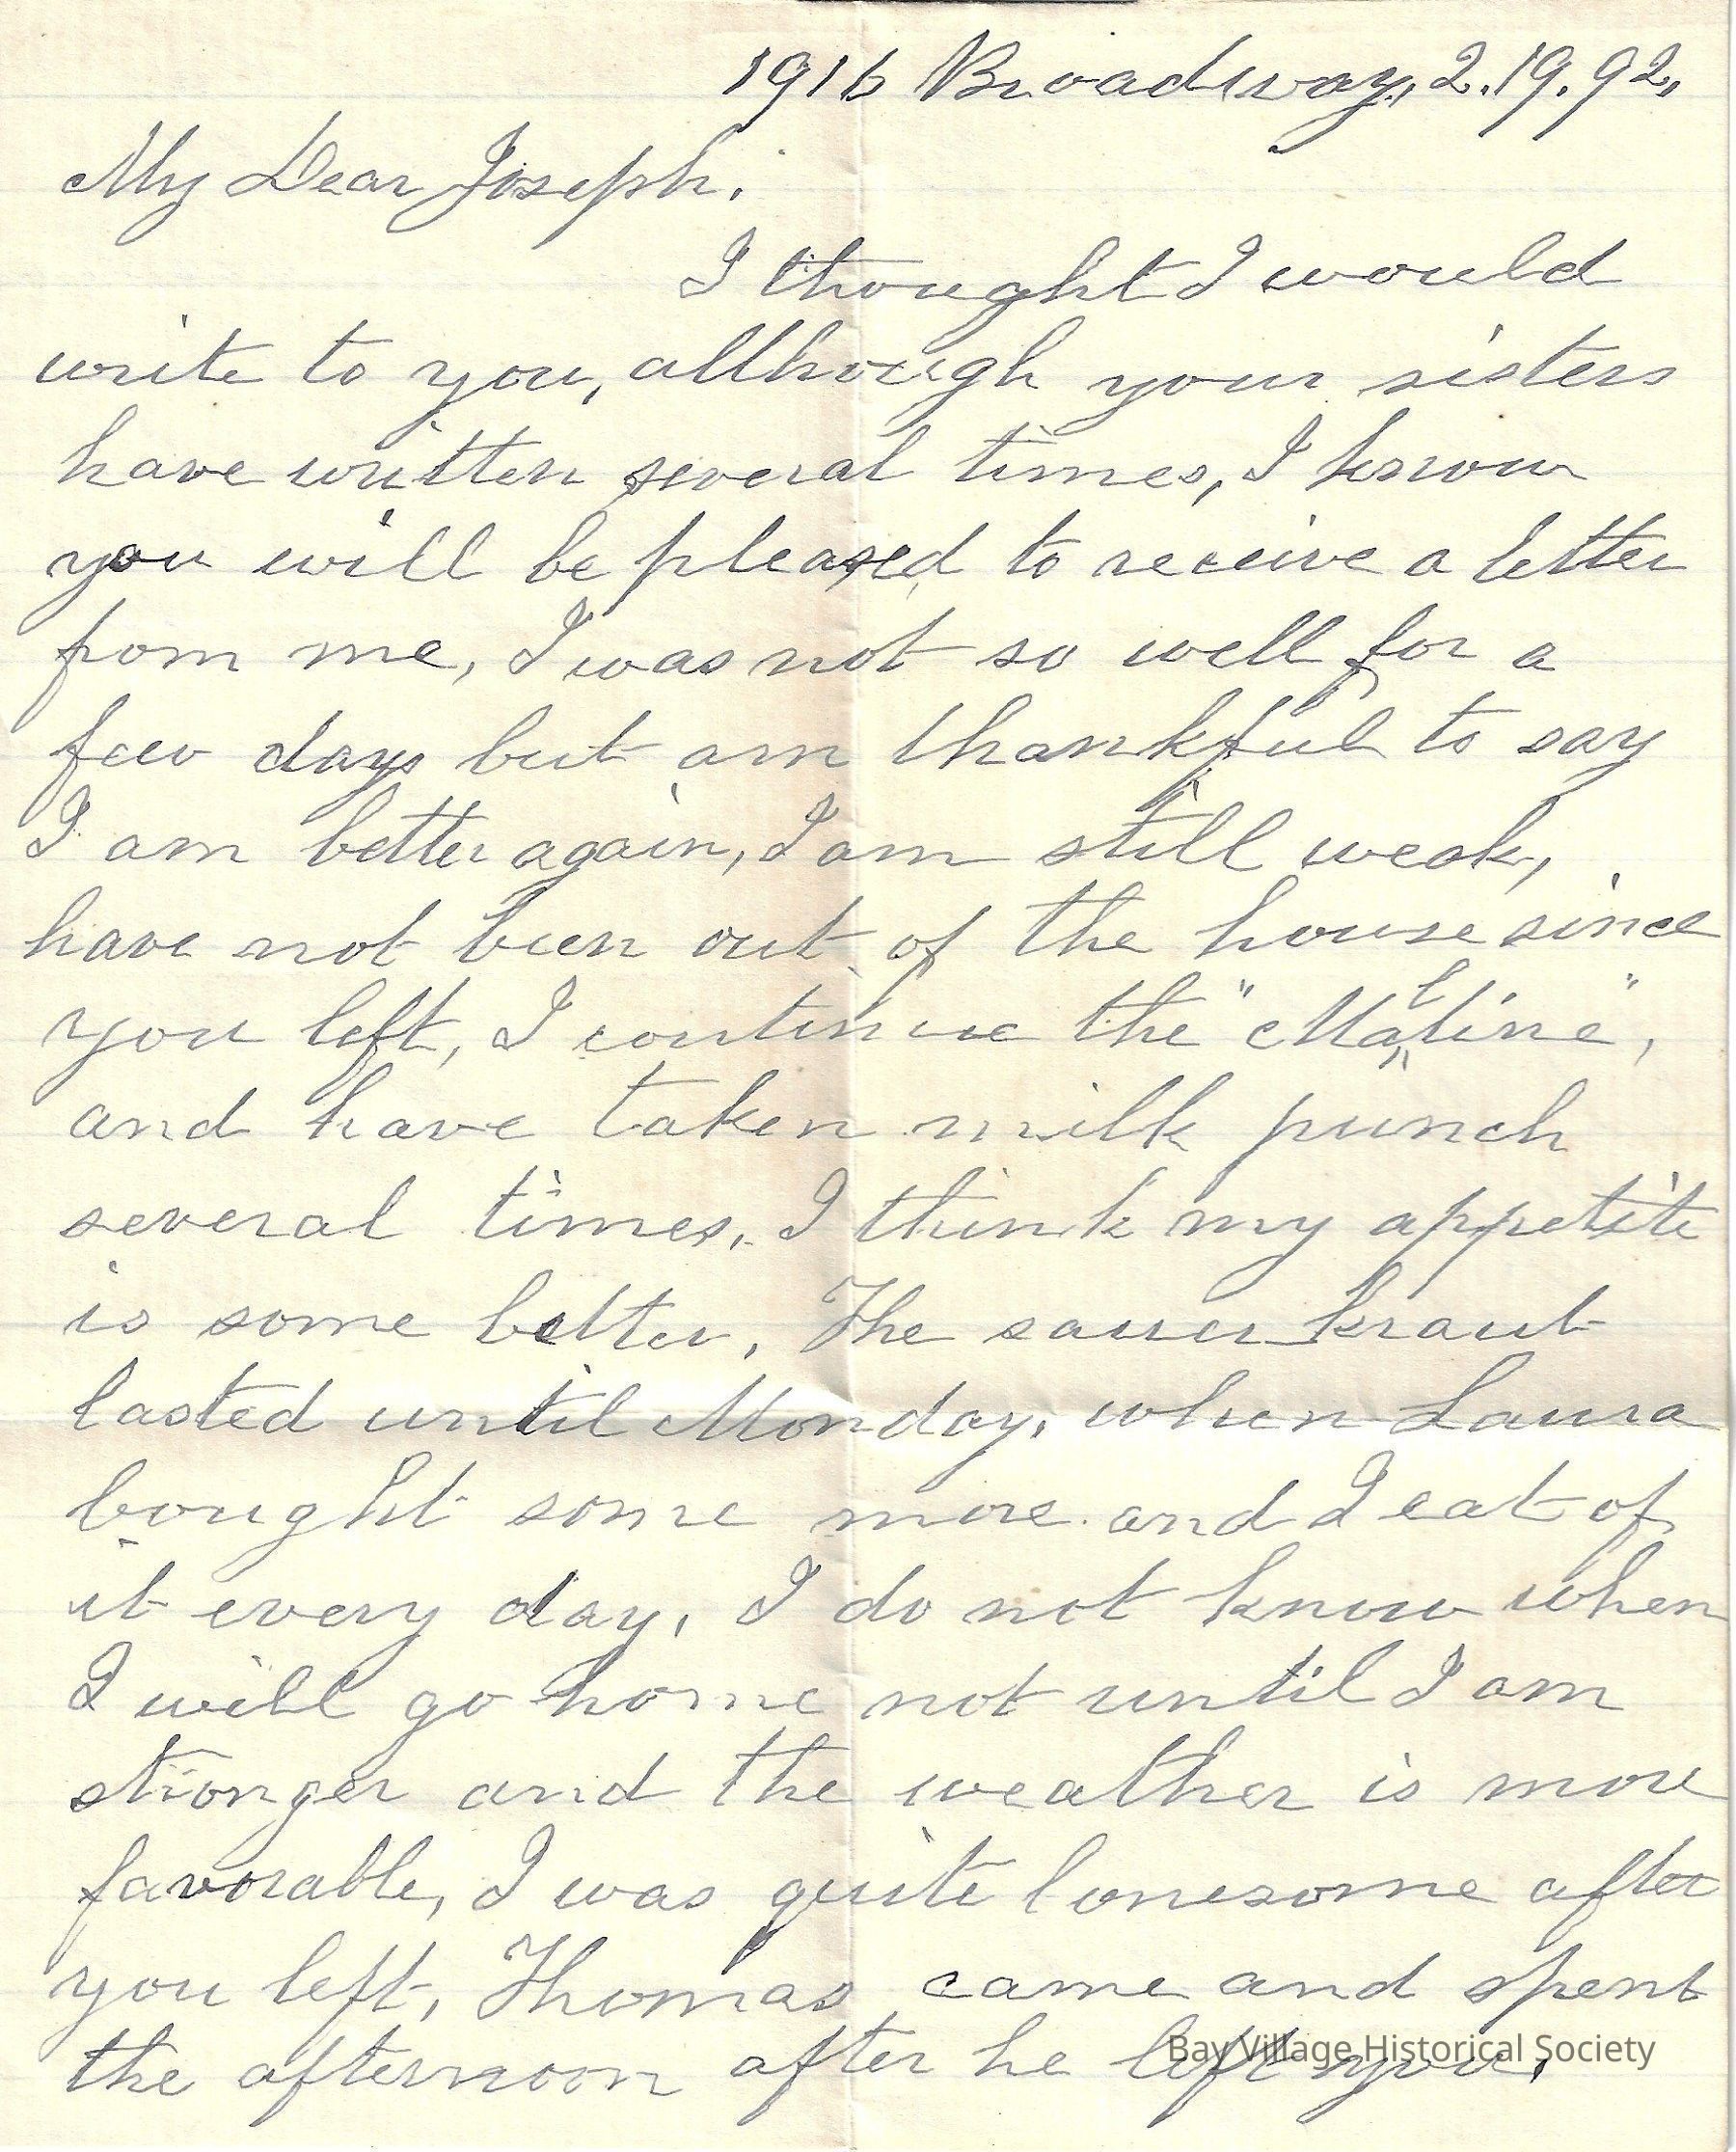 1916 Broadway, 2.19.92,
My Dear Joseph.
I thought I would
write to you, although your sisters
have written several times, I know
you will be pleased to receive a letter
from me, I was not so well for a
few days but am thankful to say
I am better again, I am still weak,
have not been out of the house since
you left, I continue the "Maltine",
and have taken milk punch
several times, I think my appetite
is some better, The sauer kraut
lasted until Monday, when Laura
bought some more and I eat of
it every day, I do not know when
I will go home not until I am
stronger and the weather is more
favorable, I was quite lonesome after
you left, Thomas came and spent
the afternoon after he left you.
Bay Village Historical Society